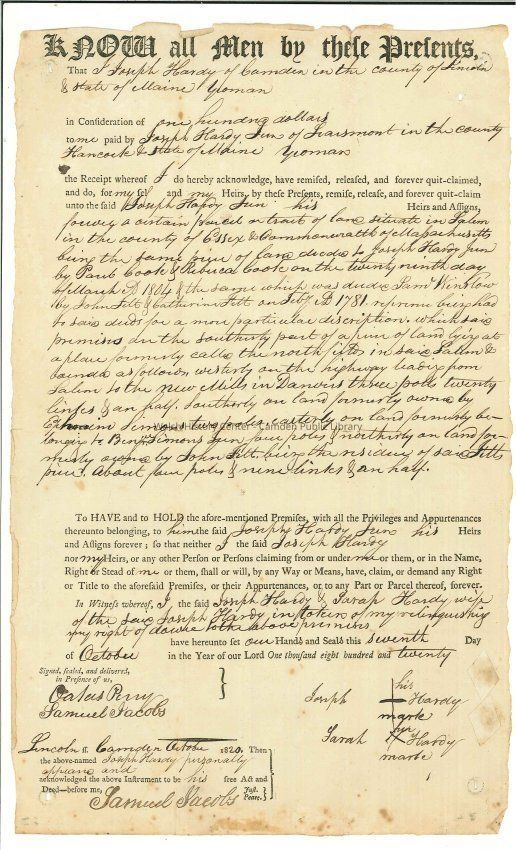 KNOW all Men by these Presents,
That I Joseph Hardy of Camden in the county of Lincoln
& State of Maine Yoman
in Consideration of one hundred dollars
to me paid by Joseph Hardy Jun of Frarsmont in the county
Hancock & State of Maine Yoman
the Receipt whereof I do hereby acknowledge, have remised, released, and forever quit-claimed,
and do, for my self and my Heirs, by these Presents, remise, release, and forever quit-claim
unto the said Joseph Hardy Jun his Heirs and Assigns,
forever a certain parcel or tract of land situate in Salem
in the county of Essex & Commonwealth of Massachusetts
being the same piece of land deeded to Joseph Hardy Jun
by Paul Cook & Rebecca Cook on the twenty ninth day
of March AD 1804 & the same which was deeded Saml Winslow
by John Felt & Catherine Felt on Feby AD 1781. reference being had
to said deeds for a more particular discription. which said
premises are the southerly part of a piece of land lying at
a place formerly called the north fields in said Sallem &
bounded as follows westerly on the highway leading from
Salem to the New Mills in Danvers three pole twenty
links & an half. Southerly on land formerly owned by
Simons four poles easterly on land formerly be-
longing to Benjn Simons Jun four poles & northerly on land for-
merly owned by John Felt being the residue of said Felts
piece. about four poles & nine links & an half.
Walsh History Center - Camden Public Library
To HAVE and to HOLD the afore-mentioned Premises, with all the Privileges and Appurtenances
thereunto belonging, to him the said Joseph Hardy Jun his Heirs
and Assigns forever; so that neither I the said Joseph Hardy
nor my Heirs, or any other Person or Persons claiming from or under me or them, or in the Name,
Right or Stead of me or them, shall or will, by any Way or Means, have, claim, or demand any Right
or Title to the aforesaid Premises, or their Appurtenances, or to any Part or Parcel thereof, forever.
In Witness whereof, I the said Joseph Hardy & Sarah Hardy wife
of the said Joseph Hardy in token of my relinquishing
my right of dower to the above premises
have hereunto set our Hands and Seals this seventh Day
of October in the Year of our Lord One thousand eight hundred and twenty
Signed, sealed, and delivered,
in Presence of us,
Perry
Samuel Jacobs
his
Joseph Hardy
mark
her
Sarah Hardy
mark
Lincoln ss. Camden October 1820. Then
the above-named Joseph Hardy personally
appeared and
acknowledged the above Instrument to be his free Act and
Deed—before me, Just. Peace.
Samuel Jacobs